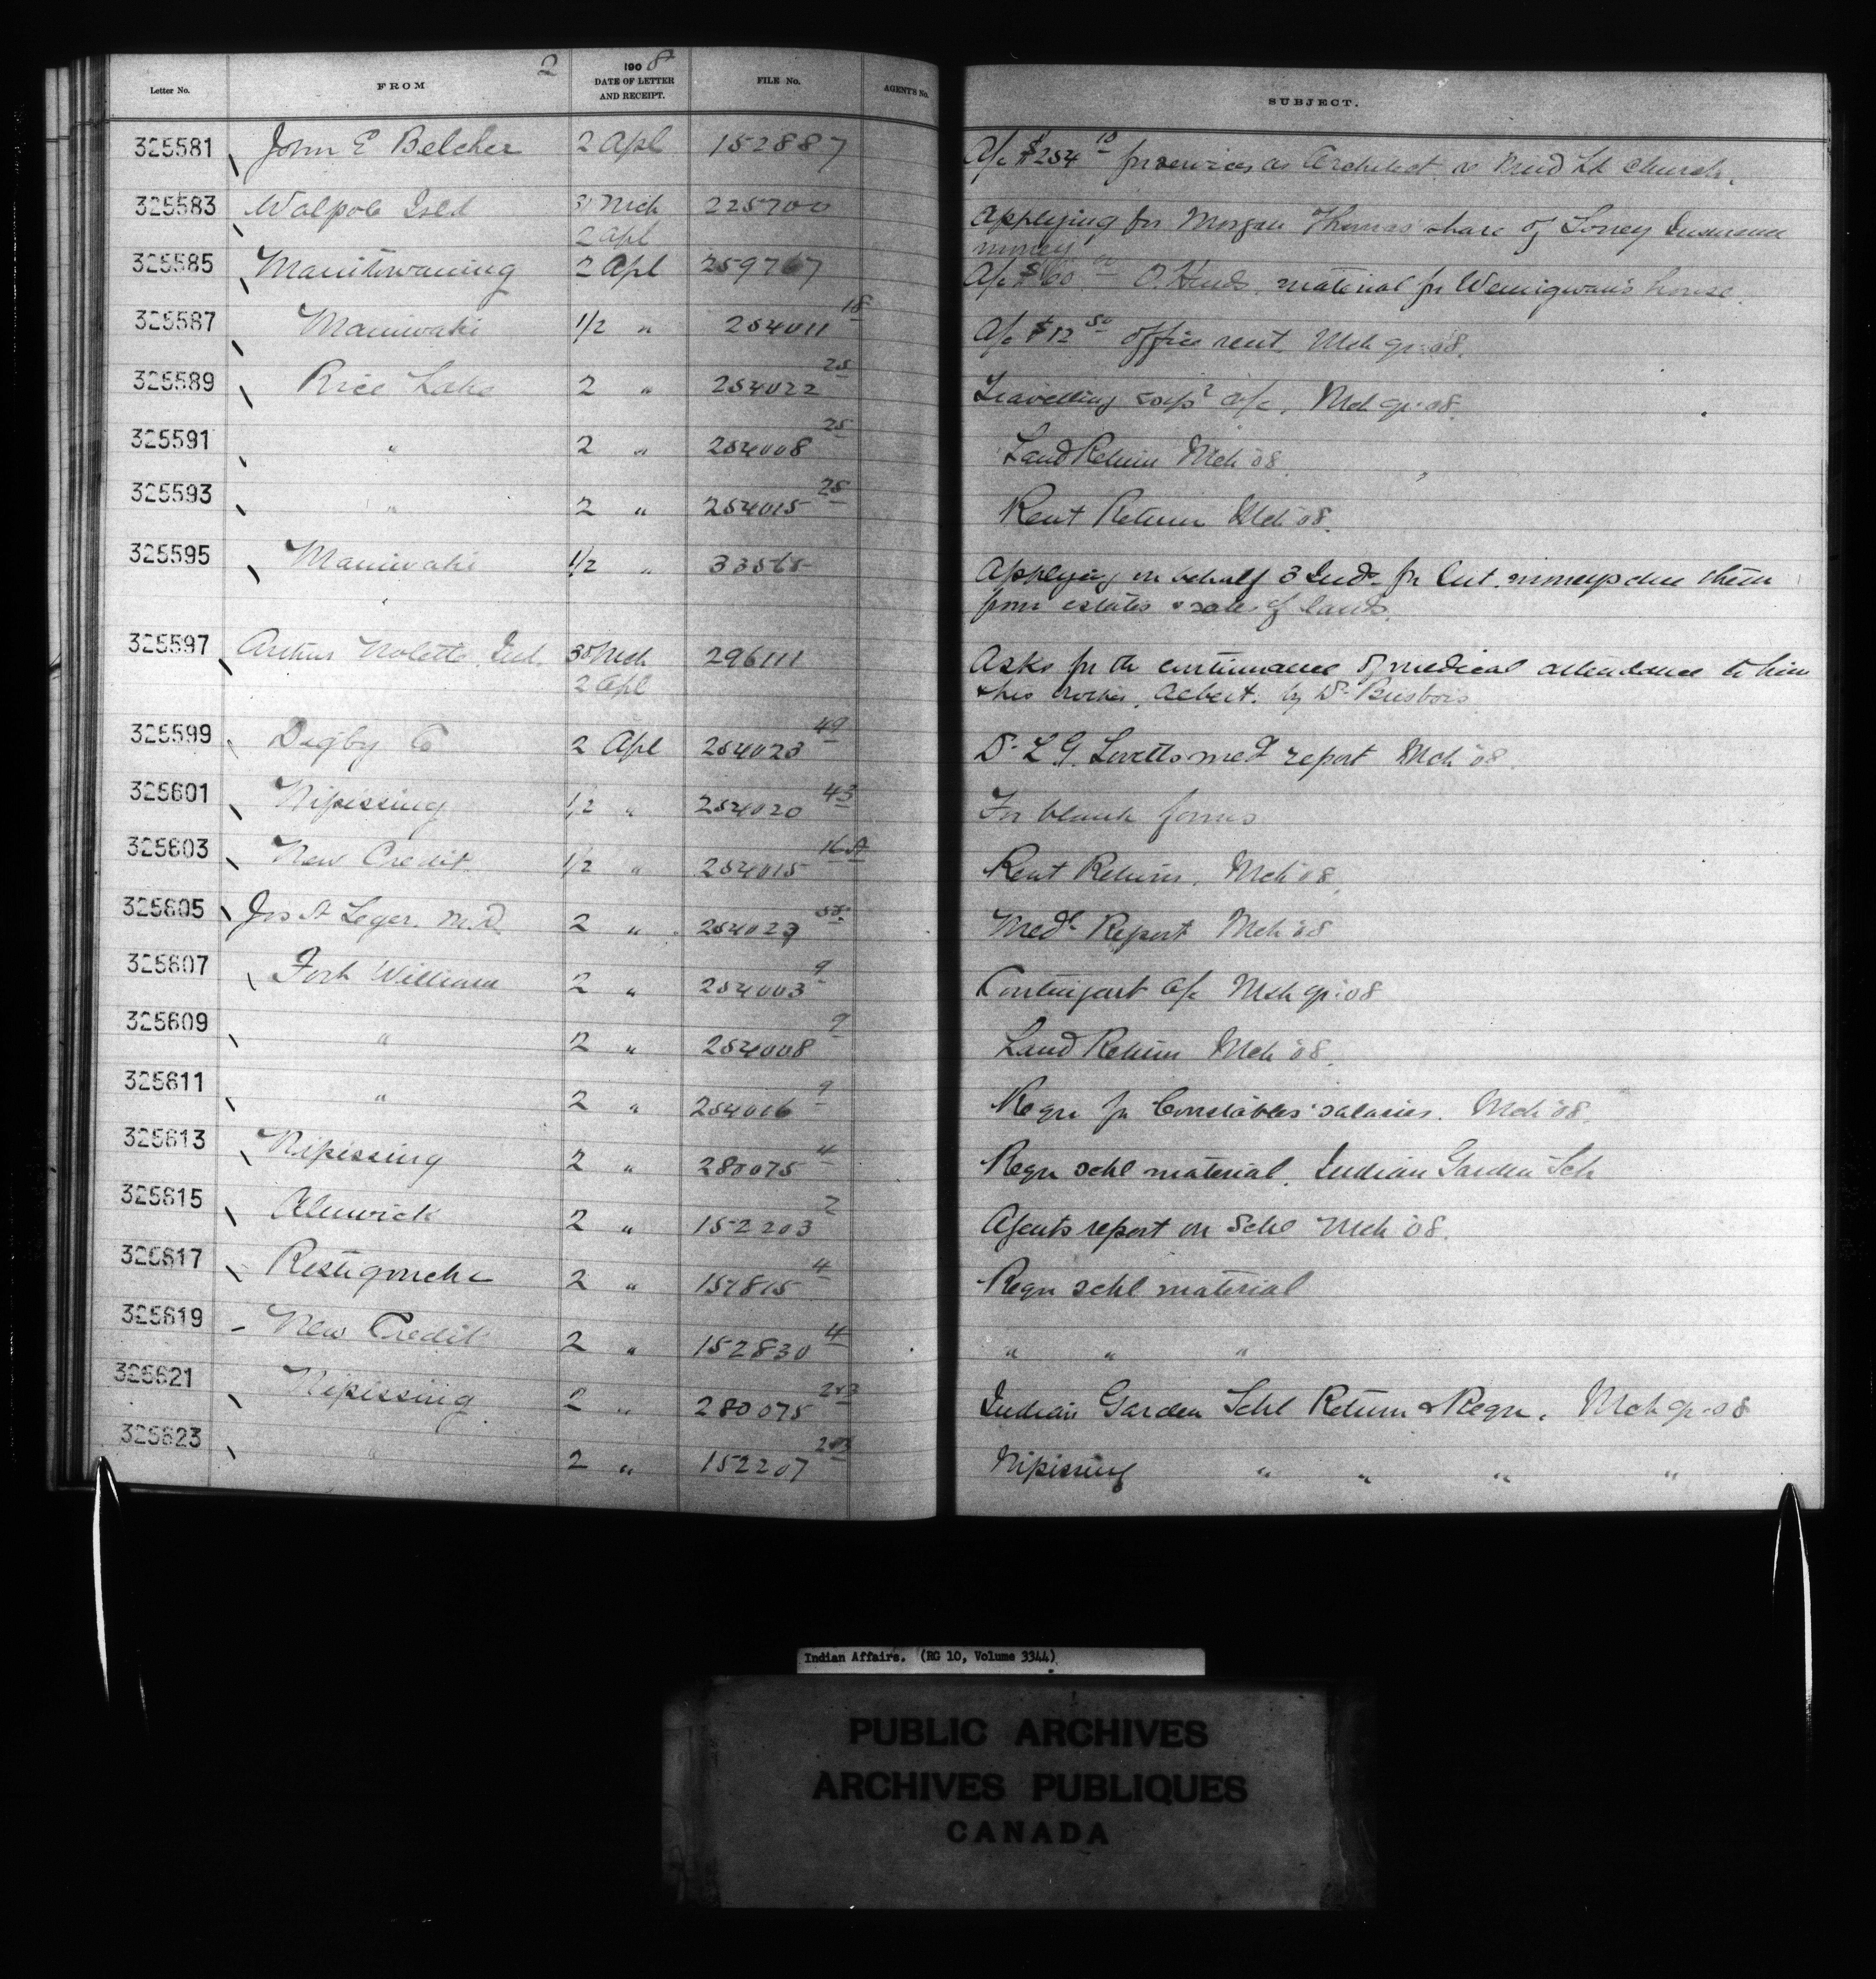 2
Letter No. FROM 1908 DATE OF LETTER AND RECEIPT. FILE No. AGENT'S No. SUBJECT.
325581 John E Belcher 2 Apl 152887 A/c $254 10 for services as Architect Mud Lk Church.
325583 Walpole Isld 31 Mch 225700 Applying for Morgan Thomas share of Insurance
2 Apl money
325585 Manitowaning 2 Apl 259767 A/c $60. 00 material for Wemigwan's house.
325587 Maniwaki 1/2 " 254011 18 A/c $12 50 office rent. Mch qr: 08.
325589 Rice Lake 2 " 254022 25 Travelling exps a/c. Mch qr: 08.
325591 " 2 " 254008 25 Land Return Mch '08.
325593 " 2 " 254015 25 Rent Return Mch '08.
325595 Maniwaki 1/2 " 33565 Applying on behalf 3 Inds for int. moneys due them
from estates & sale of lands.
325597 Arthur Nolette, Ind. 30 Mch 296111 Asks for the continuance of medical attendance to him
2 Apl & his Albert. by Dr Brisbois
325599 Digby Co 2 Apl 254023 49 Dr L. G. Lovetts med report Mch '08.
325601 Nipissing 1/2 " 254020 43 For blank forms
325603 New Credit 1/2 " 254015 16 A Rent Return. Mch '08.
325605 Jos St Leger. M.D. 2 " 254023 Medl Report Mch '08
325607 Fort William 2 " 254003 9 Contingent A/c Mch qr: 08
325609 " 2 " 254008 9 Land Return Mch '08.
325611 " 2 " 254016 9 Reqn for Constables' salaries. Mch '08.
325613 Nipissing 2 " 280075 4 Reqn schl material. Indian Garden Sch
325615 Alnwick 2 " 152203 2 Agents report on Schl Mch '08.
325617 Restigouche 2 " 157815 4 Reqn schl material
325619 New Credit 2 " 152830 4 " " "
325621 Nipissing 2 " 280075 2&3 Indian Garden Schl Return & Reqn. Mch qr: 08
325623 " 2 " 152207 2&3 Nipissing " " " "
Indian Affairs. (RG 10, Volume 3344)
PUBLIC ARCHIVES
ARCHIVES PUBLIQUES
CANADA